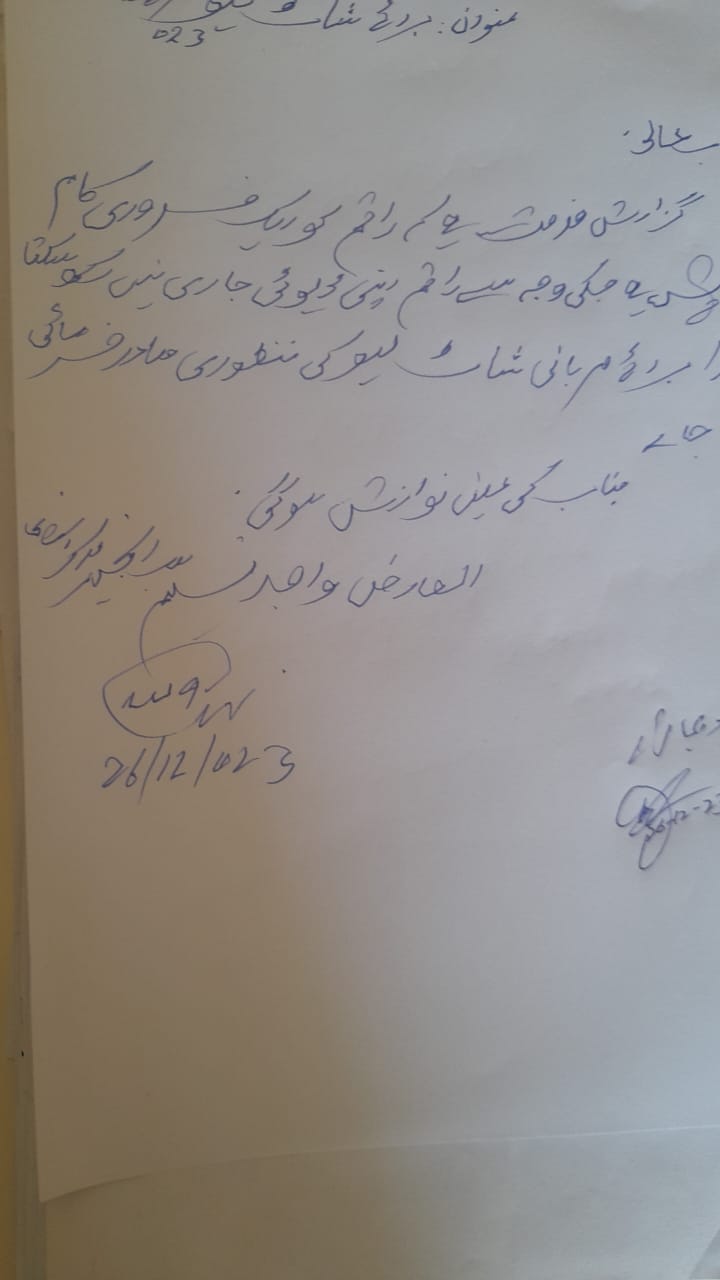 عنوان: برائے شارٹ لیو
023
عالی.
گزارش خدمت ہے کہ راقم کو ایک ضروری کام
ہے جسکی وجہ سے راقم اپنی ڈیوٹی جاری نہیں رکھ سکتا
برائے مہربانی شارٹ لیو کی منظوری صادر فرمائی
جائے
جناب کی عین نوازش ہوگی.
العارض واجد نسیم سب انجینئر
26/12/023
26-12-23